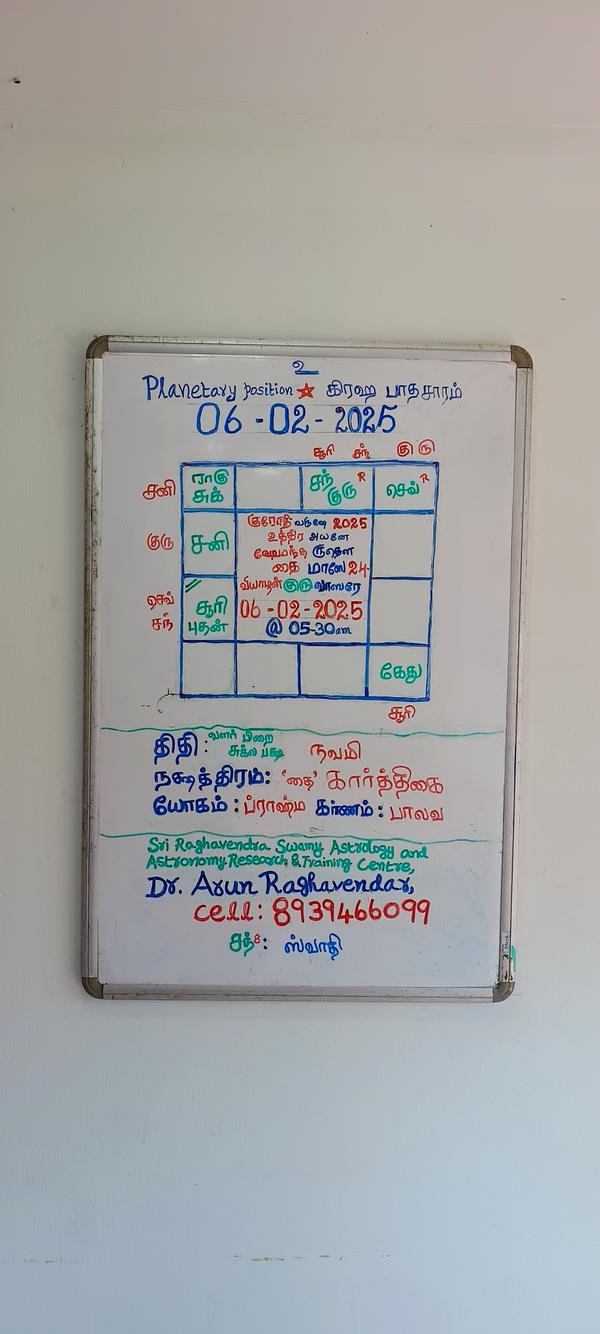 உ
Planetary position ★ கிரஹ பாதசாரம்
06 - 02 - 2025
சூரி சந் குரு
சனி
ராகு சுக்
சந் குரு R
செவ் R
குரு
சனி
குரோதி வருஷே 2025
உத்திர அயனே
ஹேமந்த ருதௌ
தை மாஸே 24
வியாழன் குரு வாஸரே
06 - 02 - 2025
@ 05-30am
செவ் சந்
சூரி புதன்
கேது
சூரி
திதி : வளர் பிறை சுக்ல பக்ஷ நவமி
நக்ஷத்திரம்: 'தை' கார்த்திகை
யோகம் : ப்ராஹ்ம கரணம் : பாலவ
Sri Raghavendra Swamy Astrology and
Astronomy Research & Training Centre,
Dr. Arun Raghavendar,
cell: 8939466099
சந்8: ஸ்வாதி